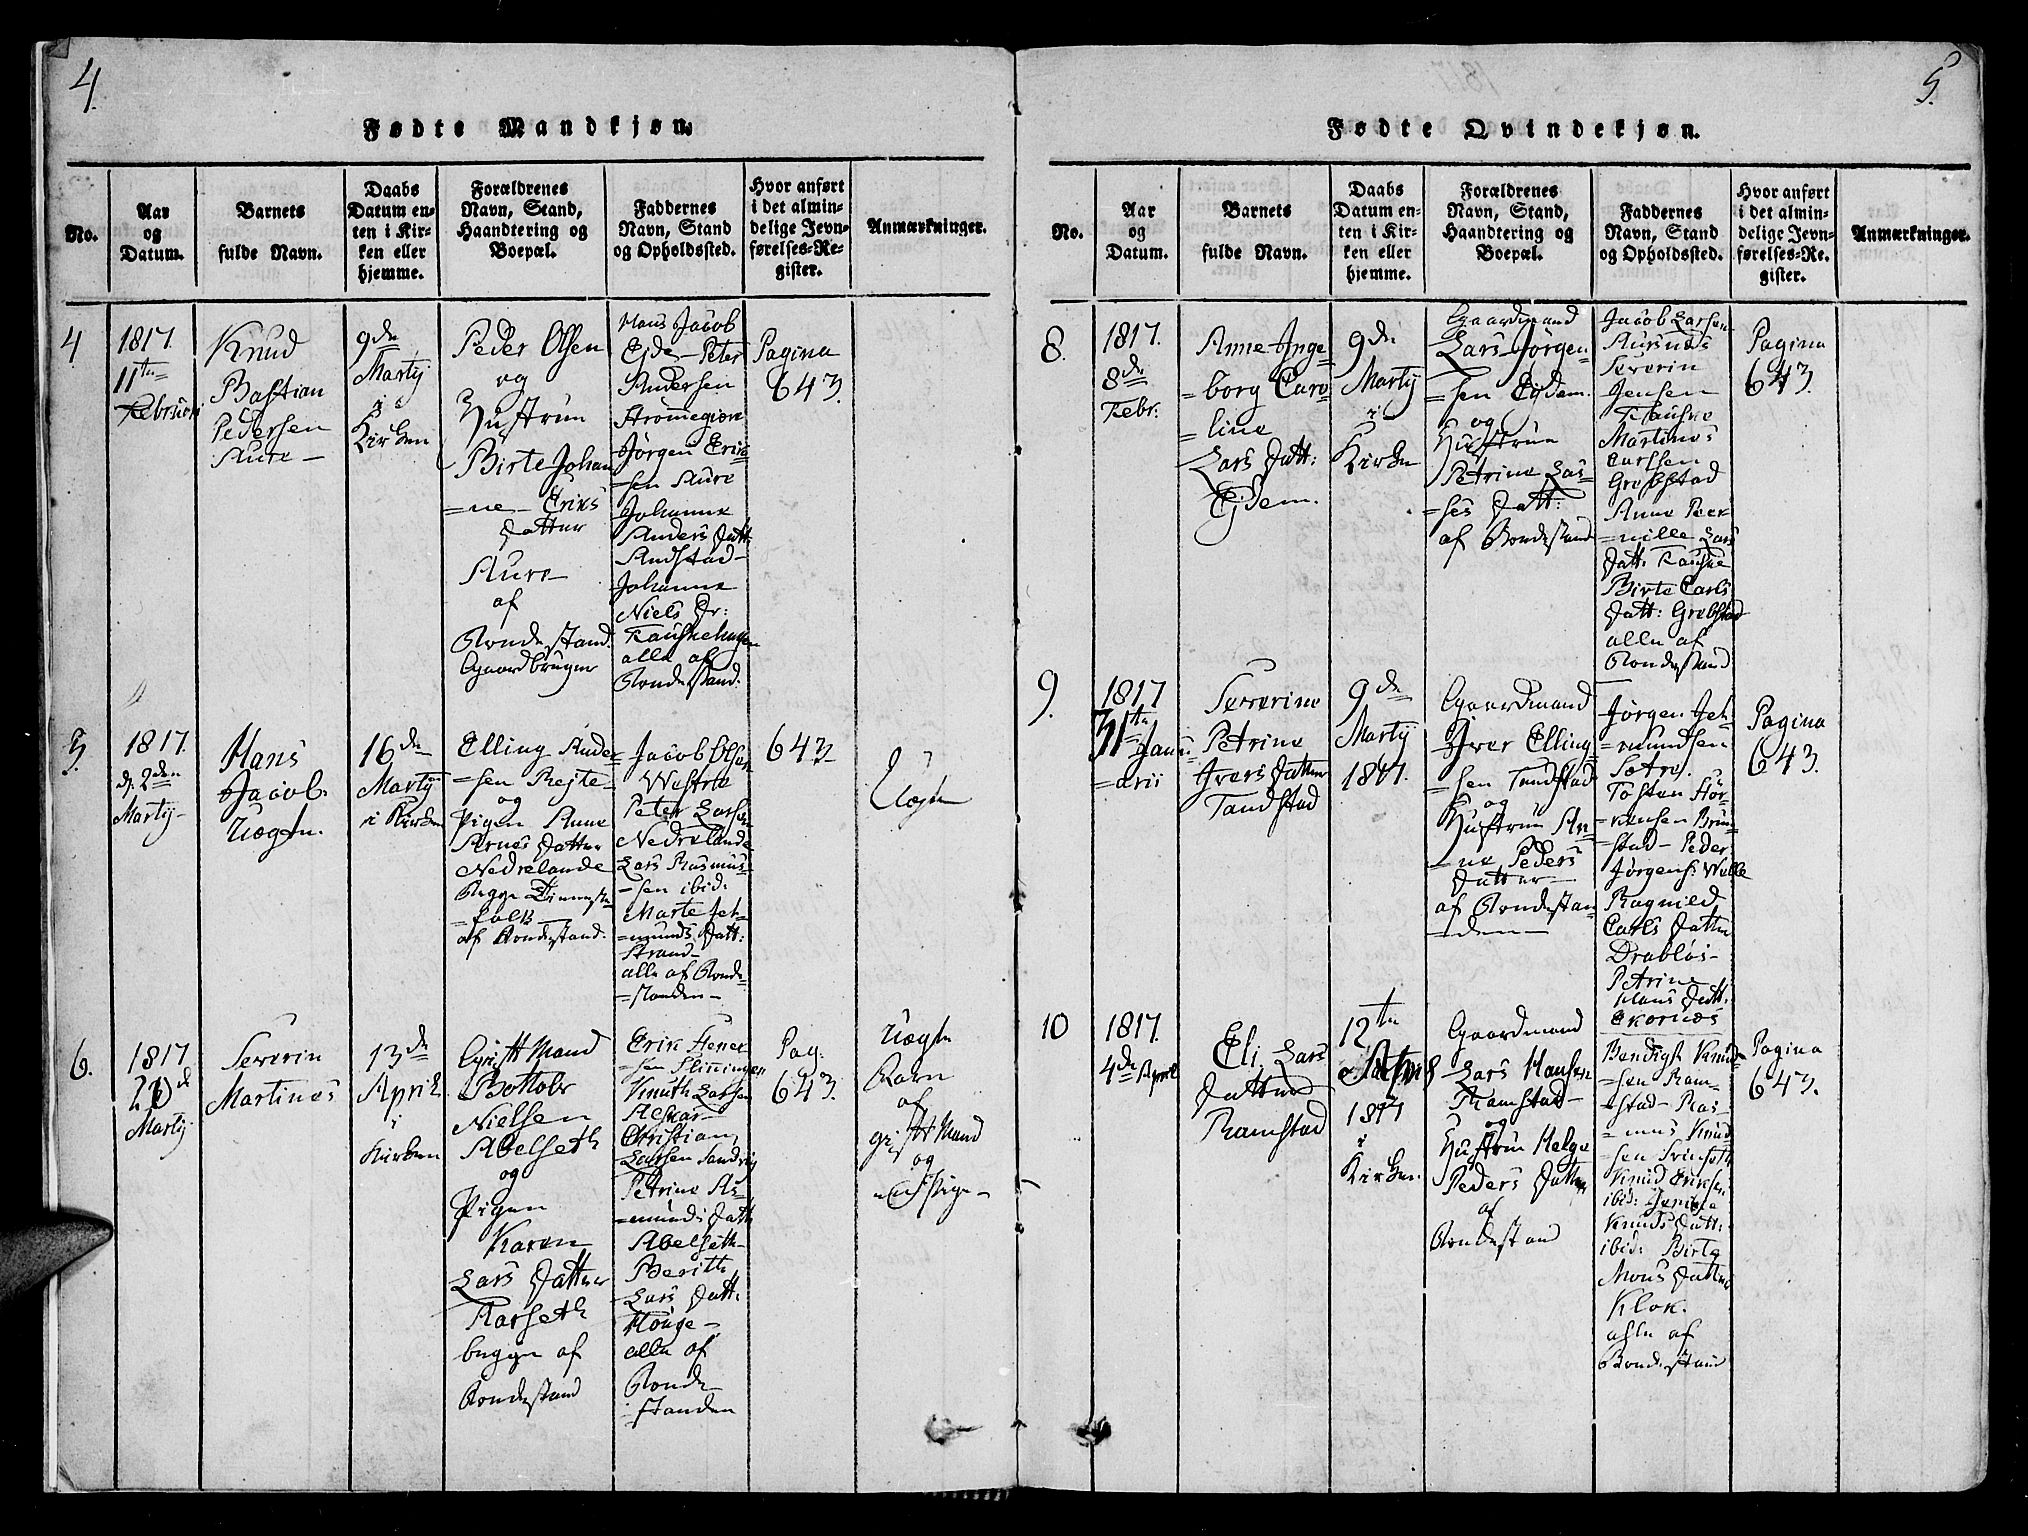 4.
Fødte Mandkjøn.
No.
Aar
og
Datum.
Barnets
fulde Navn.
Daabs
Datum en-
ten i Kir-
ken eller
hjemme.
Forældrenes
Navn, Stand,
Haandtering og
Boepæl.
Faddernes
Navn, Stand
og Opholdssted.
Hvor anført
i det almin-
delige Jevn-
førelses-Re-
gister.
Anmærkninger.
4
1817.
11te
Februari
Knud
Bastian
Pedersen
Aure
9de
Martij
i
Kirken
Peder Olsen
og
Hustrue
Birte Johan
=ne Eriks
Datter
Aure
af
Bondestand.
Gaardbruger
Hans Jacob
Eide - Peter
Andersen
Strømegjære
Jørgen Erich
=sen Aure
Johanne
Anders Datt:
Andstad
Johanne
Niels Dr:
Fauskehagen
alle af
Bondestand.
Pagina
643.
5.
1817.
d. 2den
Martij
Hans
Jacob
Uægte.
16de
Martij
i Kirken
Elling Ander
=sen Rejte
og
Pigen Anne
Arnes Datter
Nedrelande
Begge Tienneste
=folk
af Bondestand.
Jacob Olsen
Westre
Peter Larsen
Nedrelande
Lars Rasmus
=sen ibid:
Marte Jet
=munds Datt:
Strand
alle af Bonde
=standen
643
Uægte
6.
1817
20d
Martij
Severin
Martinus
13de
April
i
Kirken
Gift Mand
Bottolv
Nielsen
Abelseth
og
Pigen
Karen
Lars Datter
Aarseth
begge af
Bondestand
Erik Stener
=sen Slinningen
Knuth Larsen
Aepar
Christian
Larsen Sandvig
Petrine As
=munds Datt
Abelseth
Berith
Lars Datt:
Houge
alle af
Bonde
=standen
Pag:
643.
Uægte
Barn
af
gift Mand
og
en Pige
5.
Fødte Qvindekjøn.
No.
Aar
og
Datum.
Barnets
fulde Navn.
Daabs
Datum en-
ten i Kir-
ken eller
hjemme.
Forældrenes
Navn, Stand,
Haandtering og
Boepæl.
Faddernes
Navn, Stand
og Opholdssted.
Hvor anført
i det almin-
delige Jevn-
førelses-Re-
gister.
Anmærkninger.
8.
1817.
8de
Febr:
Anne Inge
=borg Caro
=line
Lars Datt:
Ejdem.
9de
Martij
i
Kirken
Gaardmand
Lars Jørgen
=sen Ejdem
og
Hustrue
Petrine Las
=ses Datt:
af Bondestand
Jacob Larsen
Aursnæs
Severin
Jensen
Fauske
Martinus
Carlsen
Grebstad
Anne Peer
=nille Lars
Datt: Fauske
Birte Carls
Datt: Grebstad
alle af
Bondestand
Pagina
643.
9.
1817
31te Janu
=arii
Severine
Petrine
Ivers Datter
Tandstad
9de
Martij
1817.
Gaardmand
Iver Elling
=sen Tandstad
og
Hustrue An
=ne Peders
Datter
af Bondestan
=den
Jørgen Jet
=mundsen
Sætre.
Tosten Stor
=kensen Brun
=stad - Peder
Jørgens: Welle
Ragnild
Carls Datter
Drabløs
Petrine
Hans Datt:
Ekornæs
Pagina
643.
10
1817.
4de April
Eli Lars
Datter
Ramstad
12te
1817
i
Kirken
Gaardmand
Lars Hansen
Ramstad
og
Hustrue Helge
Peders Datter
af
Bondestand
Bendigt Knud
=sen Ram
=stad - Ras
=mus Knud
=sen Svinseth
Knud Eriksen
ibid:
Knuds Datt:
ibid: Birte
Mons Datter
Klok.
alle af
Bondestand
Pagina
643.